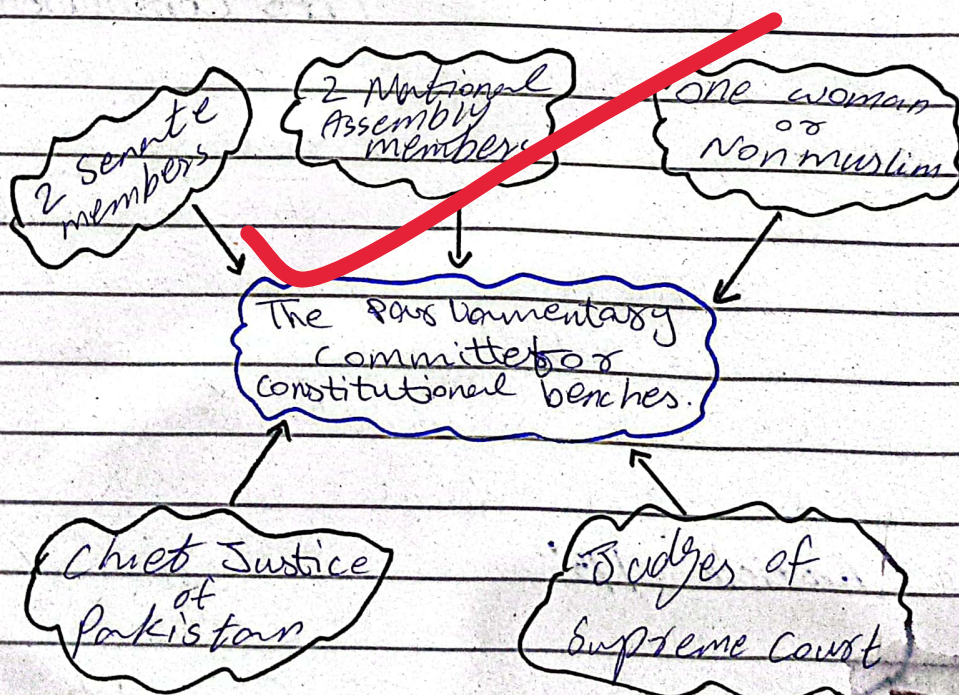 2 Senate
members
2 National
Assembly
members
one woman
or
Nonmuslim
The Parliamentary
Committee for
Constitutional benches.
Chief Justice
of
Pakistan
Judges of
Supreme Court